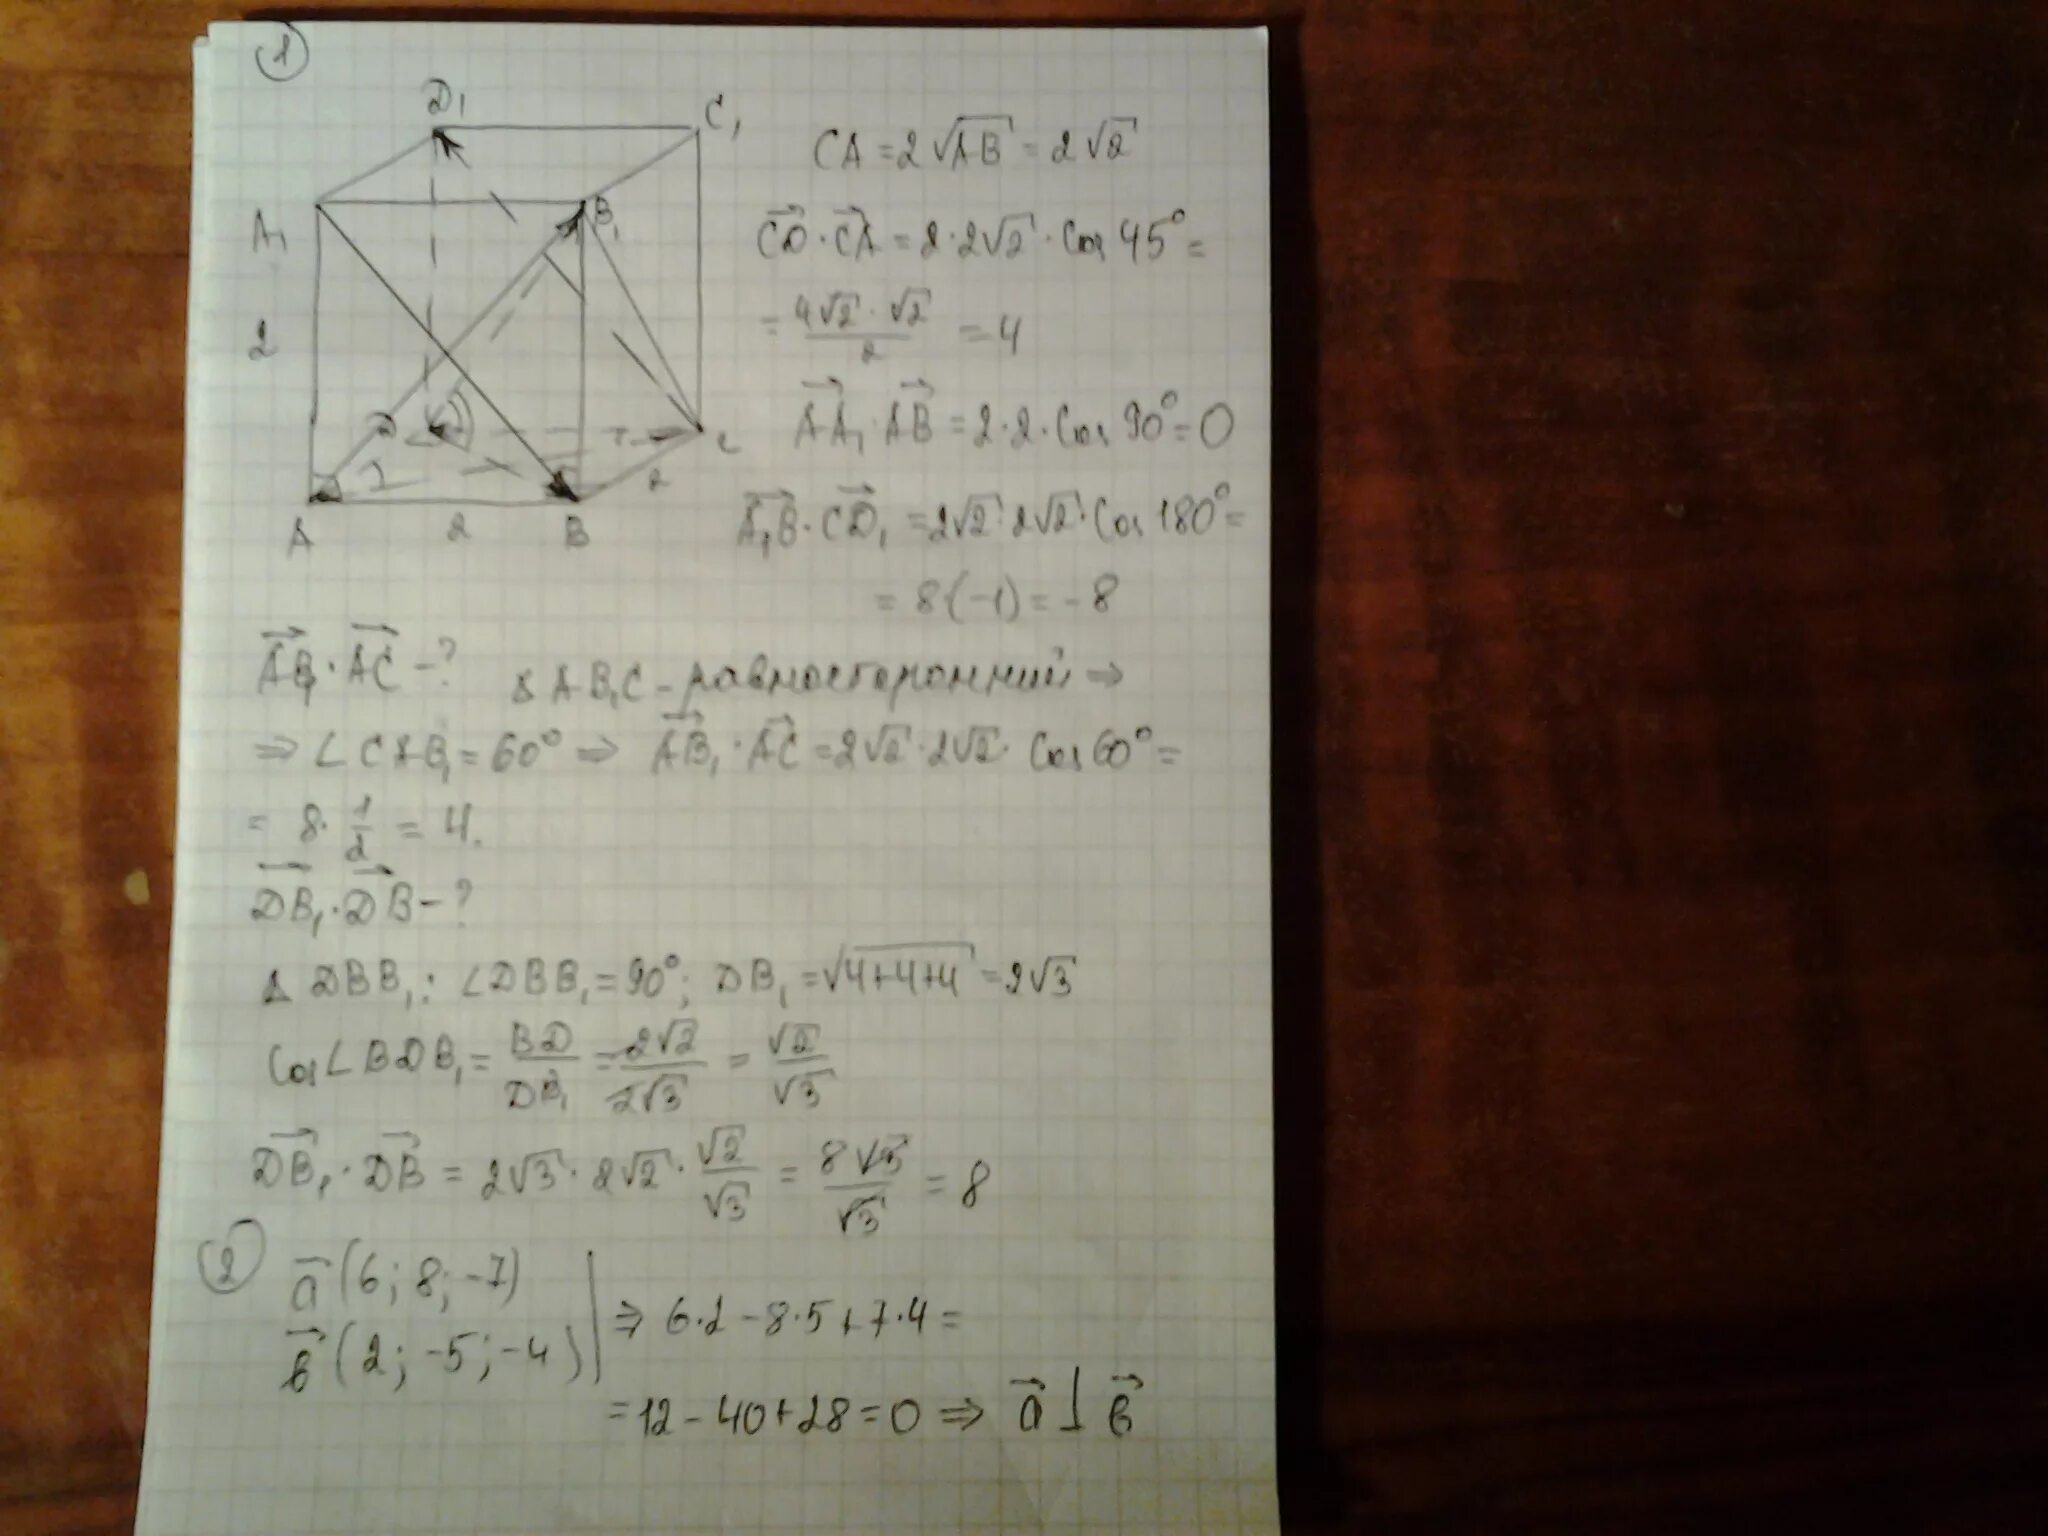 1
D₁
C₁
CA = 2√AB = 2√2
A₁
B₁
CD⃗ · CA⃗ = 2 · 2√2 · cos 45° =
= 4√2 · √2 / 2 = 4
2
AA₁⃗ · AB⃗ = 2 · 2 · cos 90° = 0
D
C
2
A
2
B
A₁B⃗ · CD₁⃗ = 2√2 · 2√2 · cos 180° =
= 8(-1) = -8
AB₁⃗ · AC⃗ - ?
Δ AB₁C - равносторонний ⇒
⇒ ∠CAB₁ = 60° ⇒ AB₁⃗ · AC⃗ = 2√2 · 2√2 · cos 60° =
= 8 · 1/2 = 4.
DB₁⃗ · DB⃗ - ?
Δ DBB₁: ∠DBB₁ = 90°; DB₁ = √4+4+4 = 2√3
cos ∠BDB₁ = BD/DB₁ = 2√2/2√3 = √2/√3
DB₁⃗ · DB⃗ = 2√3 · 2√2 · √2/√3 = 8√3/√3 = 8
2
a⃗ (6; 8; -7)
в⃗ (2; -5; -4)
⇒ 6·2 - 8·5 + 7·4 =
= 12 - 40 + 28 = 0 ⇒ a⃗ ⊥ в⃗